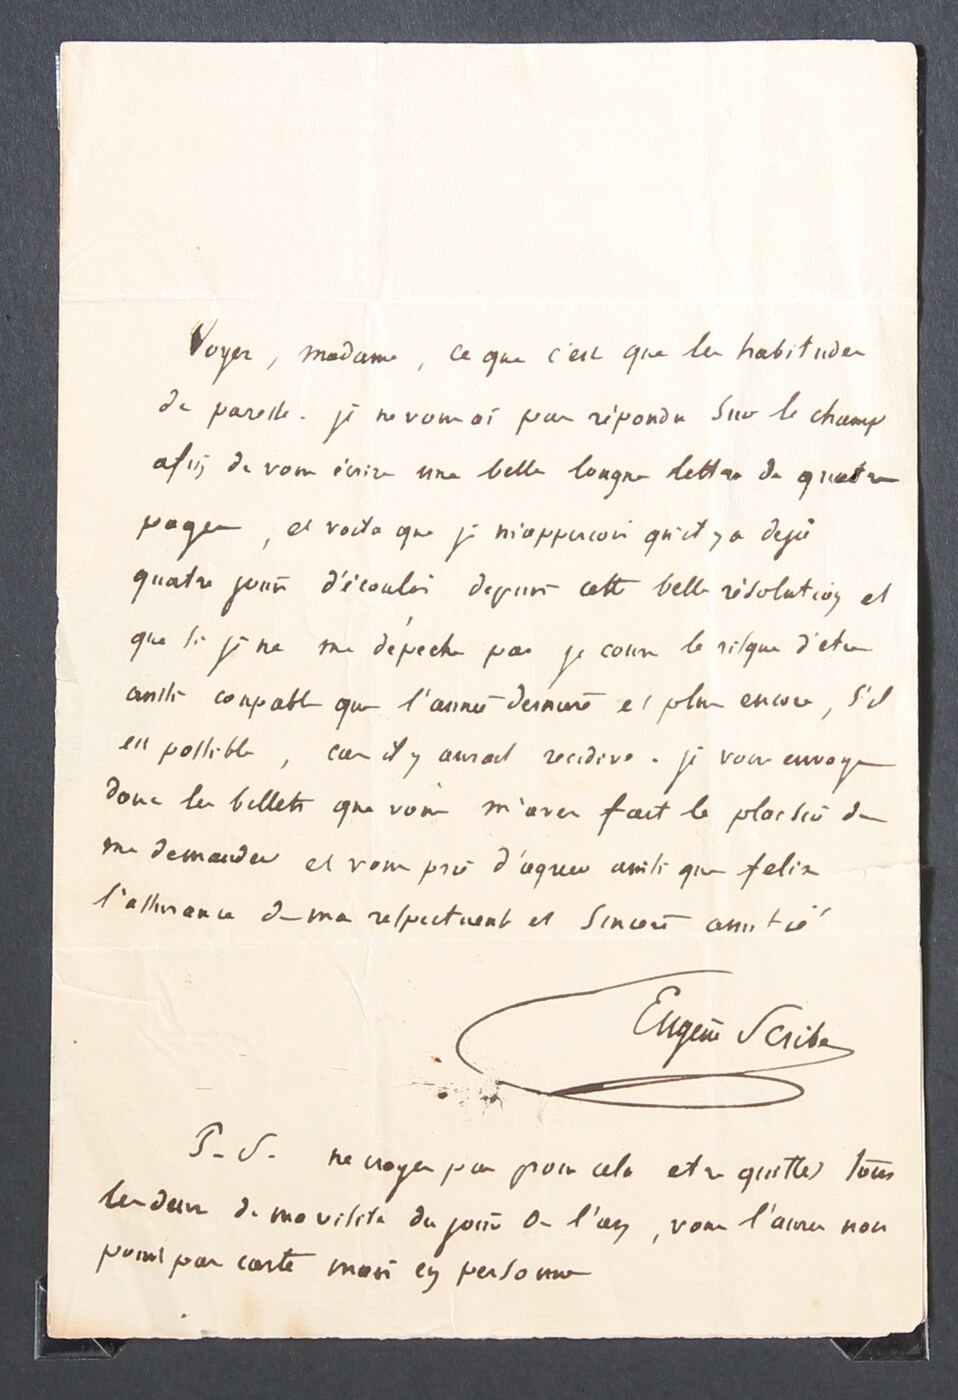 Voyez, madame, ce que c'est que les habitudes
de paresse. je ne vous ai pas répondu sur le champ
afin de vous écrire une belle longue lettre de quatre
pages, et voila que je m'apperçois qu'il y a deja
quatre jours d'écoulés depuis cette belle résolution et
que si je ne me dépeche pas je cours le risque d'etre
aussi coupable que l'année derniere et plus encore, s'il
est possible, car il y aurait recidive. je vous envoye
donc les billets que vous m'avez fait le plaisir de
me demander et vous prie d'agréer ainsi que felix
l'assurance de ma respectueuse et sincere amitié
Eugène Scribe
P.S. ne croyez pas pour cela etre quittes tous
les deux de ma visite du jour de l'an, vous l'aurez non
point par carte mais en personne